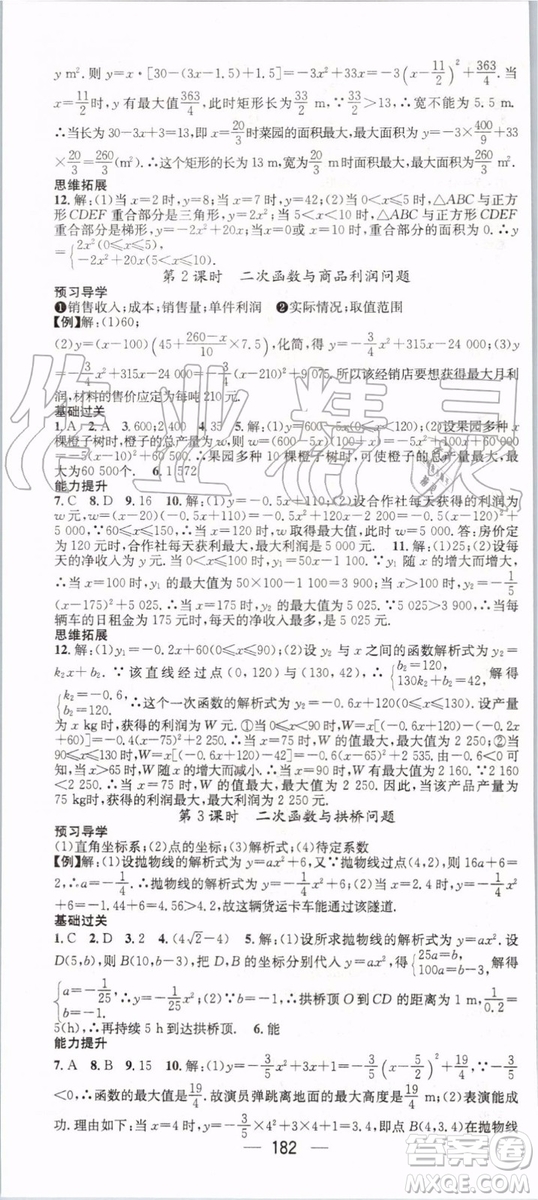 y m². 则 y=x·[30-(3x-1.5)+1.5]=-3x²+33x=-3(x-11/2)²+363/4. 当
x=11/2时, y 有最大值363/4, 此时矩形长为33/2 m. ∵33/2>13, ∴宽不能为 5.5 m.
∴当长为 30-3x=13, 即 x=20/3时菜园的面积最大, 最大面积为-3×400/9+
33×20/3=260/3(m²). ∴这个矩形的长为 13 m, 宽为20/3 m时, 菜园的面积最大, 最大面积为260/3 m².
思维拓展
12. 解:(1)当 x=2 时, y=8; 当 x=7 时, y=42;(2)当 0<x≤5 时, △ABC 与正方
形 CDEF 重合部分是三角形, y=2x²; 当 5<x<10 时, △ABC 与正方形 CDEF
重合部分是梯形, y=-2x²+20x; 当x=0或 x=10 时, y=0. ∴y
={2x²(0≤x≤5), -2x²+20x(5<x≤10).
第 2 课时 二次函数与商品利润问题
预习导学
❶销售收入;成本;销售量;单件利润 ❷实际情况;取值范围
【例】解:(1)60;
(2)y=(x-100)(45+260-x/10×7.5), 化简, 得 y=-3/4x²+315x-24 000. (3)y
=-3/4x²+315x-24 000=-3/4(x-210)²+9 075. 所以该经销店要获得最大月利
润, 材料的售价应定为每吨 210 元.
基础过关
1. A 2. A 3. 600;2 400 4. 35 5. 解:(1)y=600-5x(0≤x<120);(2)设果园多种 x
棵橙子树时, 橙子的总产量为 w 个,
∴果园多种 10 棵橙子树时, 可使橙子的总产量最大, 最
大为 60 500 个. 6. 1 572
能力提升
7. C 8. D 9. 16 10. 解:(1)y=-0.5x+110;(2)设合作社每天获得的利润为
w 元, w=(x-20)y=(x-20)(-0.5x+110)=-0.5x²+120x-2 200=-0.5
(x-120)²+5 000. 时, w 取得最大值, 此时 w=5 000. 答:房价定
为 120 元时, 合作社每天获利最大, 最大利润是 5 000 元. 11. 解:(1)25;(2)设每
天的净收入为 y 元. 当 0<x≤100 时, y₁=50x-1 100. ∵y₁ 随 x 的增大而增大,
∴当 x=100 时, y₁ 的最大值为 50×100-1 100=3 900. 当 x>100 时, y₂=-1/5
(x-175)²+5 025. ∴当 x=175 时, y₂ 的最大值为 5 025. ∵5 025>3 900, ∴当每
辆车的日租金为 175 元时, 每天的净收入最多是 5 025 元.
思维拓展
12. 解:(1)y₁=-0.2x+60(0≤x≤90);(2)设 y₂ 与 x 之间的函数解析式为 y₂=
k₂x+b₂. ∵该直线经过点(0, 120)与(130, 42), ∴{b₂=120, 130k₂+b₂=42, 解得
{k₂=-0.6, b₂=120, ∴这个一次函数的解析式为 y₂=-0.6x+120(0≤x≤130). 设产量
为 x kg时, 获得的利润为 W 元. ①当 0≤x≤90 时, W=x[-0.2x+60-(-0.6x
+120)]
∴当 x=75 时, W 的值最大, 最大值为 2 250. ②当
90≤x≤130时, W=x[42-(-0.6x+120)]=0.6(x-65)²+2 535. 由-0.6<0可
知, 当 x>65 时, W 随 x 的增大而减小. ∴当 x=90 时, W 有最大值, W=-0.6×(90-65)²+2 535=2 160. 因此当该产品产量为
75 kg时, 获得的利润最大, 最大利润为 2 250 元.
第 3 课时 二次函数与拱桥问题
预习导学
(1)直角坐标系;(2)点的坐标;(3)解析式;(4)待定系数
【例】解:(1)设抛物线的解析式为 y=ax²+6, 又∵抛物线过点(4, 2), 则 16a+6=
2, ∴a=-1/4. ∴抛物线的解析式为 y=-1/4x²+6;(2)当 x=2.4 时, y=-1/4x²
+6=-1.44+6=4.56>4.2, 故这辆货运卡车能通过该隧道.
基础过关
1. C 2. D 3. 2 4. (4√2-4) 5. 解:(1)设所求抛物线的解析式为 y=ax². 设
D(5, b), 则 B(10, b-3), 把 D、B 的坐标分别代入, 得{25a=b, 100a=b-3, 解得
{a=-1/25, b=-1. ∴y=-1/25x²;(2)∵b=-1, ∴拱桥顶 O 到 CD 的距离为 1 m,
5(h). ∴再持续 5 h到达拱桥顶. 6. 能
能力提升
7. A 8. B 9. 15 10. 解:(1)y=-3/5x²+3x+1=-3/5(x-5/2)²+19/4, ∵-3/5
<0, ∴函数的最大值是19/4. 故演员弹跳离地面的最大高度是19/4 m;(2)表演能成
功. 理由如下:当 x=4 时, y=-3/5×4²+3×4+1=3.4, 即点 B(4, 3.4)在抛物线
182
作业精灵
答案圈